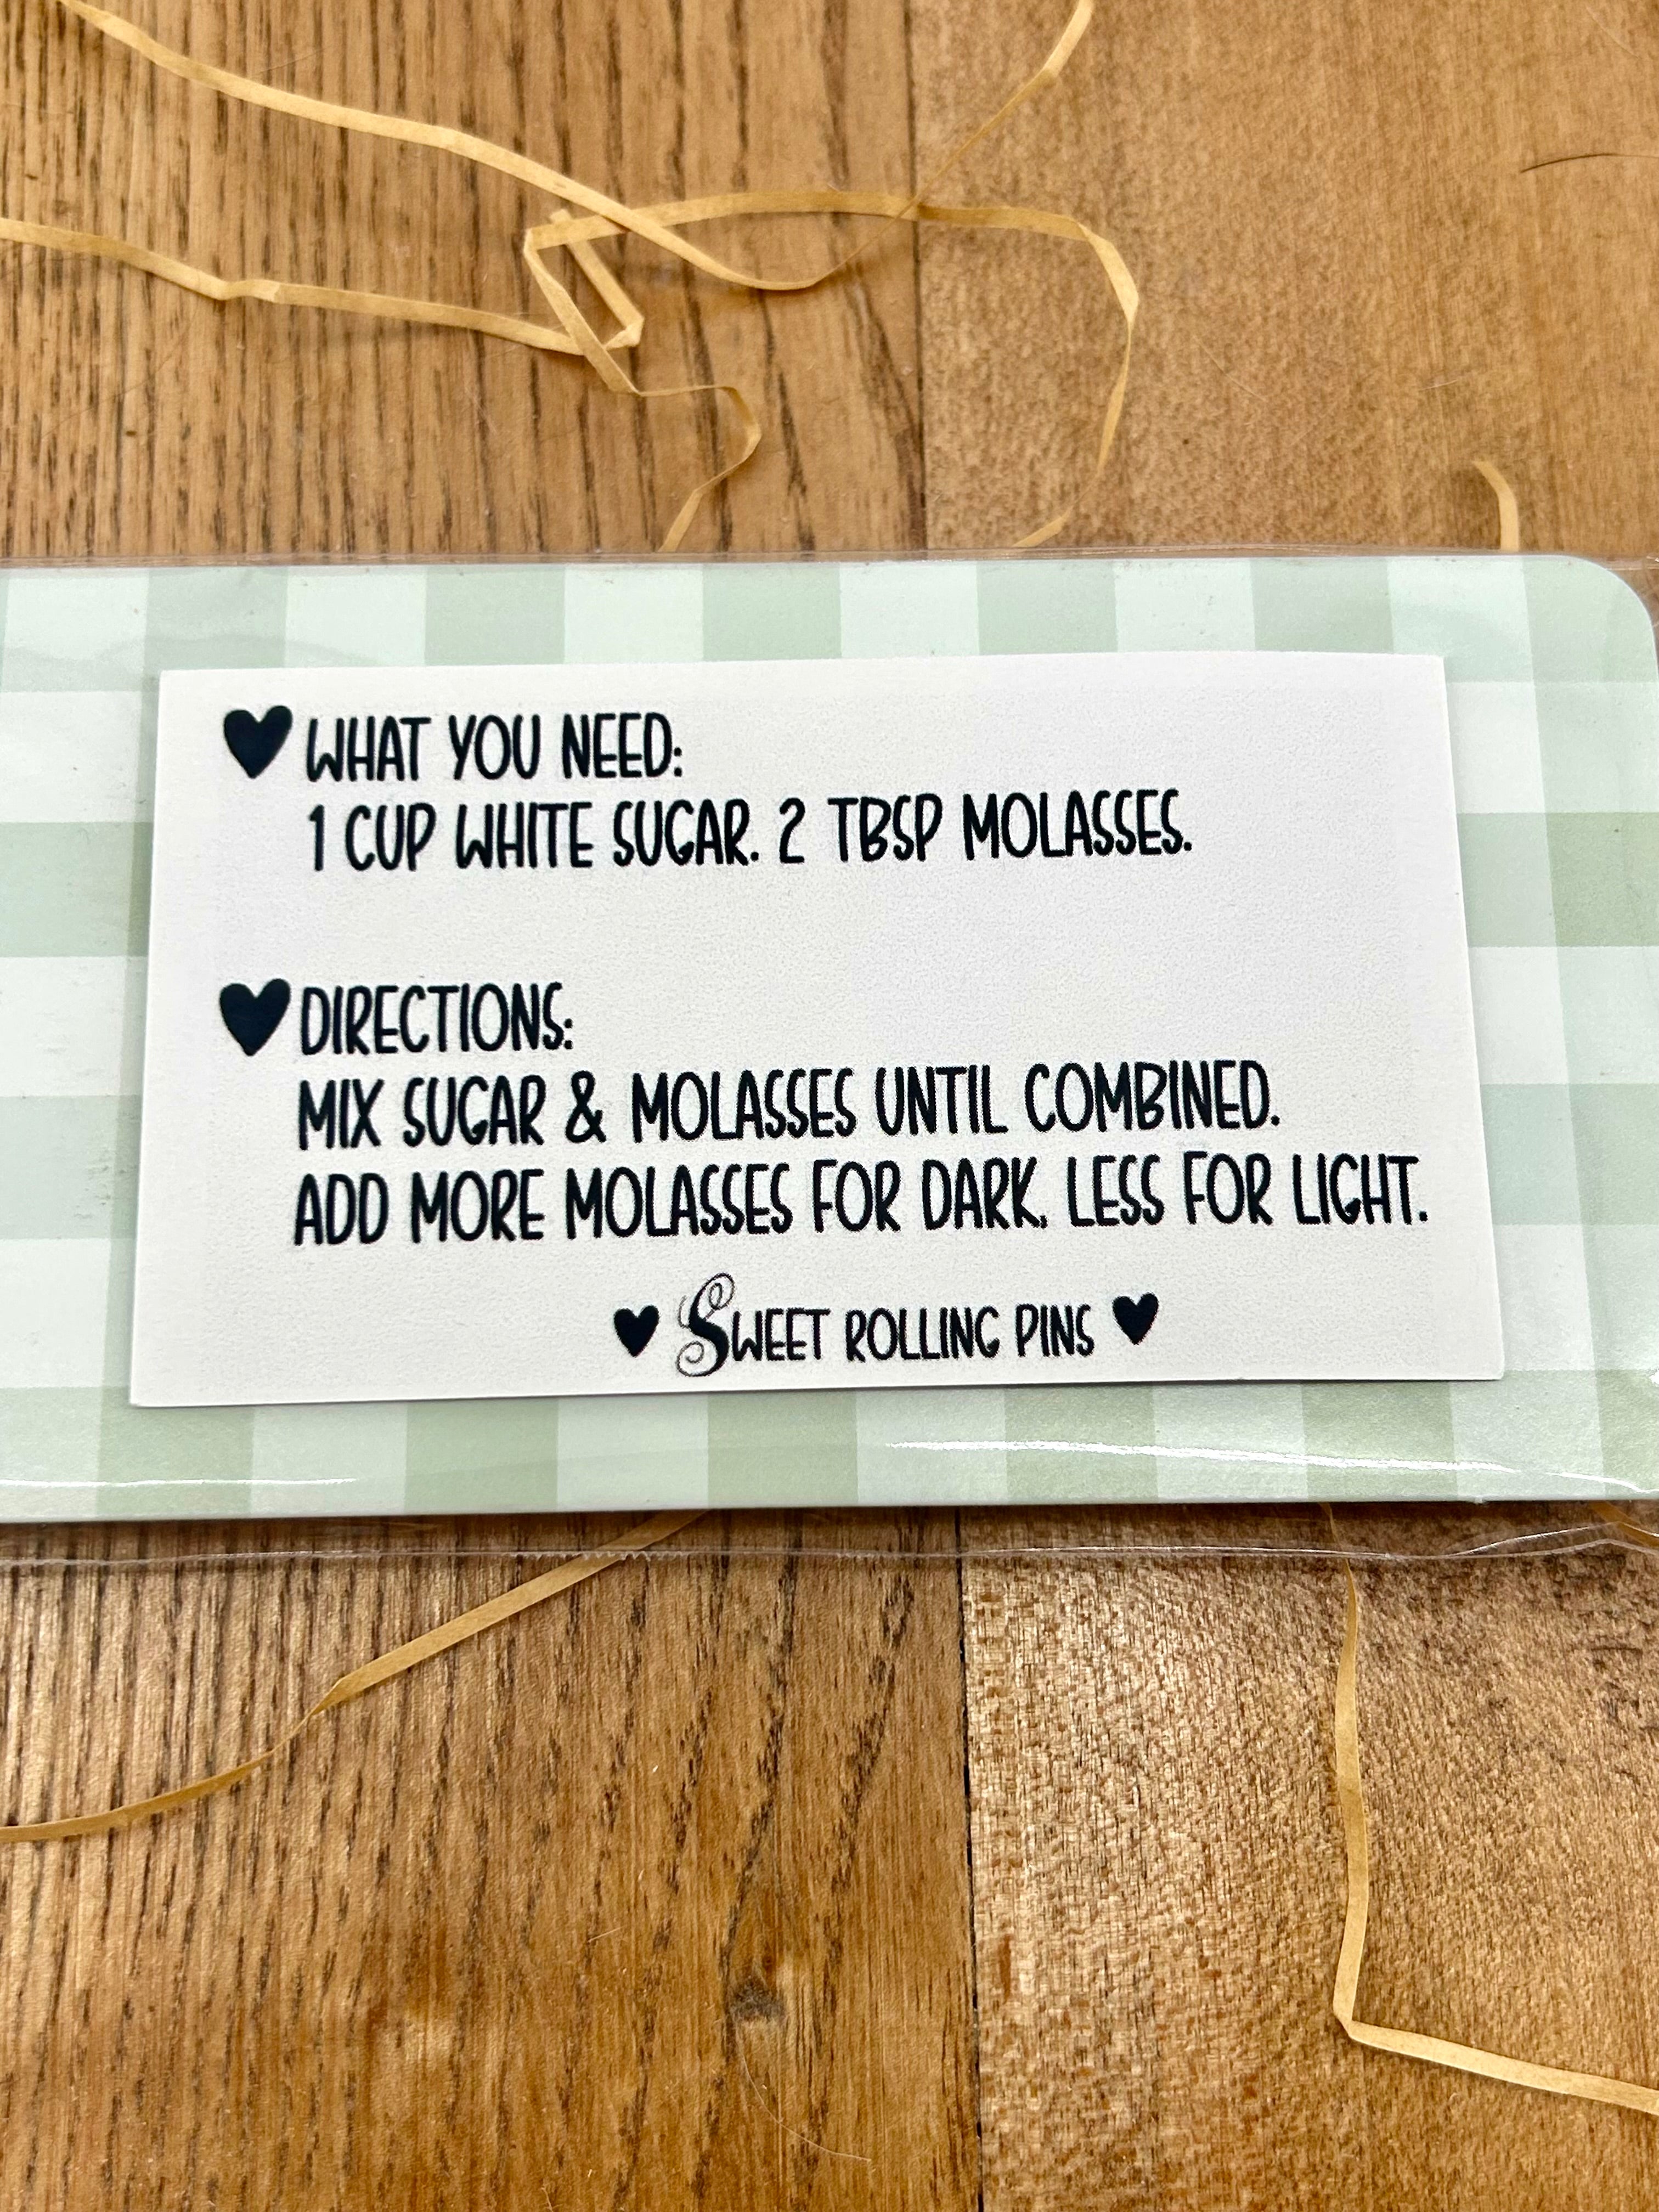 WHAT YOU NEED:
1 CUP WHITE SUGAR. 2 TBSP MOLASSES.
DIRECTIONS:
MIX SUGAR & MOLASSES UNTIL COMBINED.
ADD MORE MOLASSES FOR DARK, LESS FOR LIGHT.
SWEET ROLLING PINS